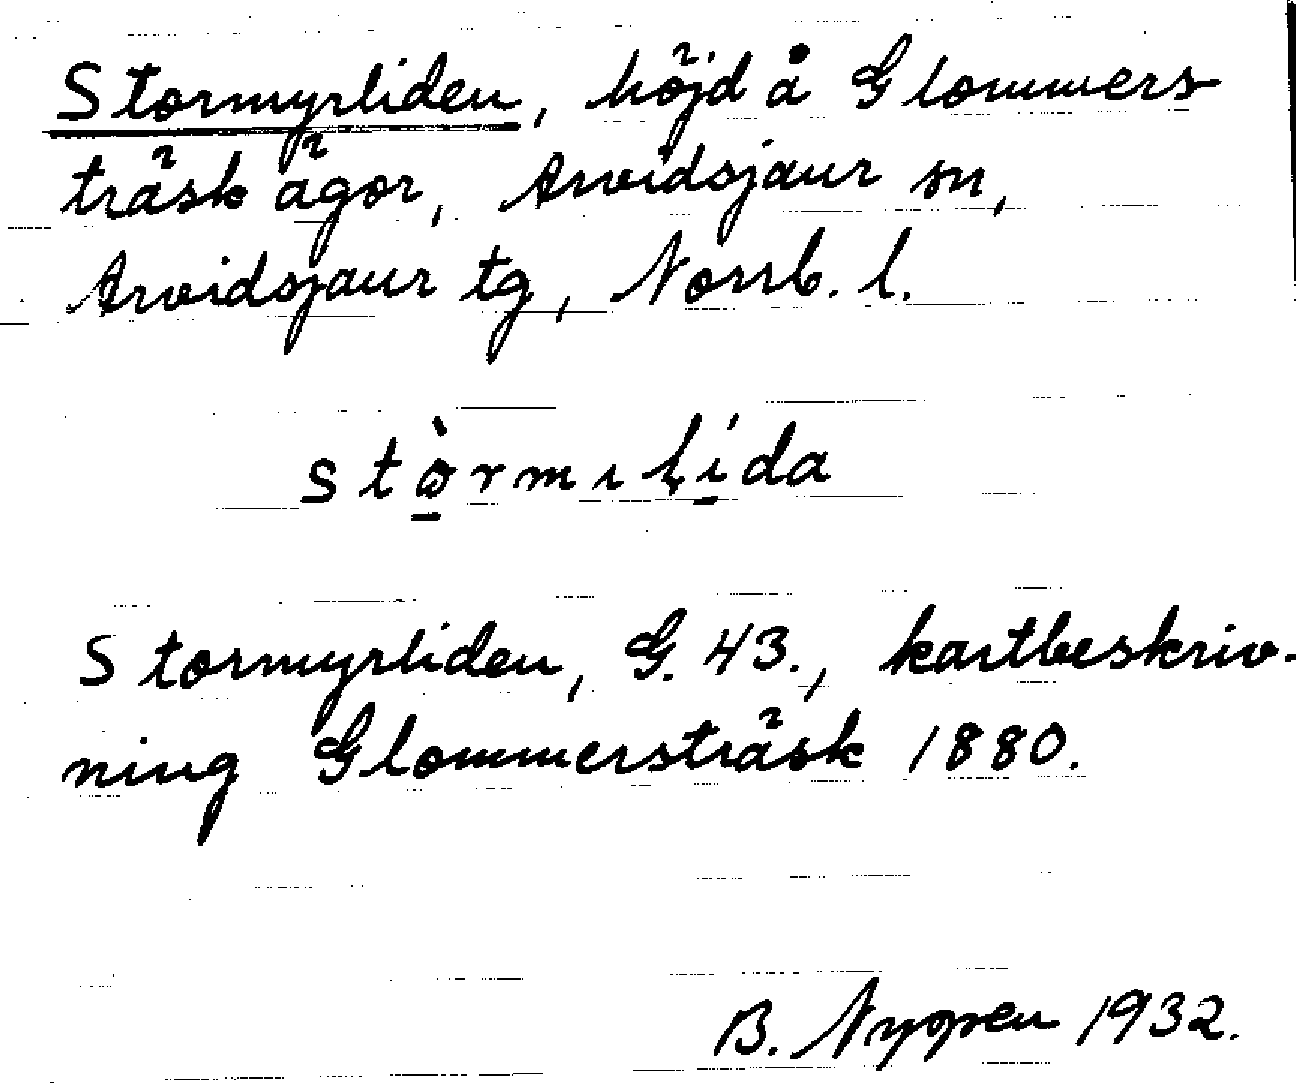 Stormyrliden, höjd å Glommers
träsk ägor, Arvidsjaur sn,
Arvidsjaur tg, Norrb. l.
stò̱rmılí̱da
Stormyrliden, G. 43., kartbeskriv-
ning Glommersträsk 1880.
B. Nygren 1932.